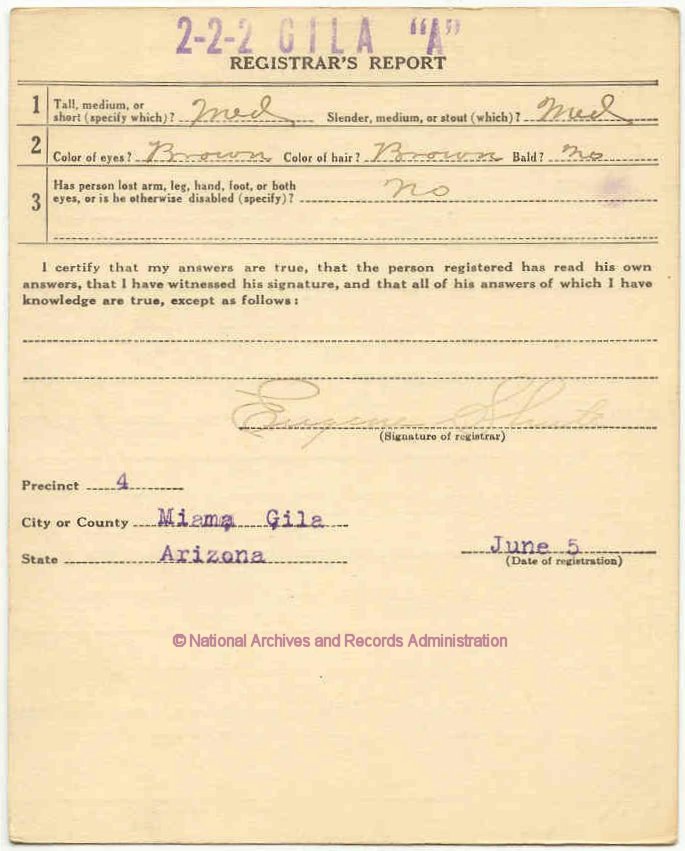 2-2-2 GILA "A"
REGISTRAR'S REPORT
1 Tall, medium, or short (specify which)? Med Slender, medium, or stout (which)? Med
2 Color of eyes? Brown Color of hair? Brown Bald? No
3 Has person lost arm, leg, hand, foot, or both eyes, or is he otherwise disabled (specify)? No
I certify that my answers are true, that the person registered has read his own
answers, that I have witnessed his signature, and that all of his answers of which I have
knowledge are true, except as follows:
Eugene
(Signature of registrar)
Precinct 4
City or County Miama, Gila
State Arizona
June 5
(Date of registration)
© National Archives and Records Administration